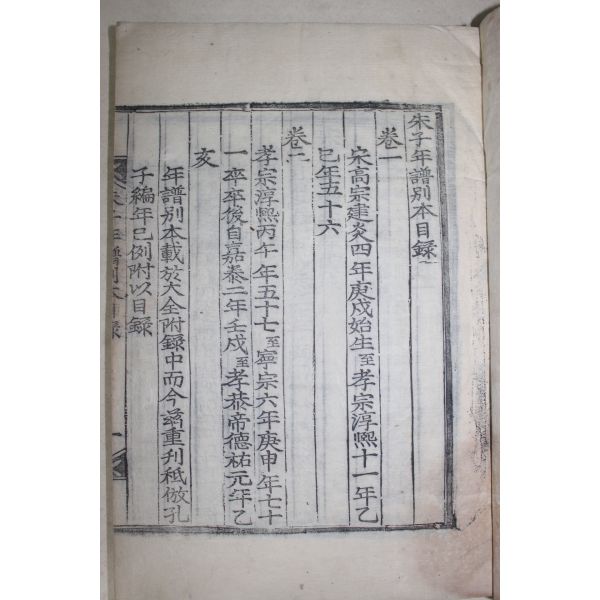 朱子年譜別本目錄
卷一
宋高宗建炎四年庚戌始生至孝宗淳熙十一年乙
巳年五十六
卷二
孝宗淳熙丙午年五十七至寧宗六年庚申年七十
一卒卒後自嘉泰二年壬戌至孝恭帝德祐元年乙
亥
年譜別本載放大全附錄中而今茲重刊秪倣孔
子編年已例附以目錄
朱子年譜別本目錄
一